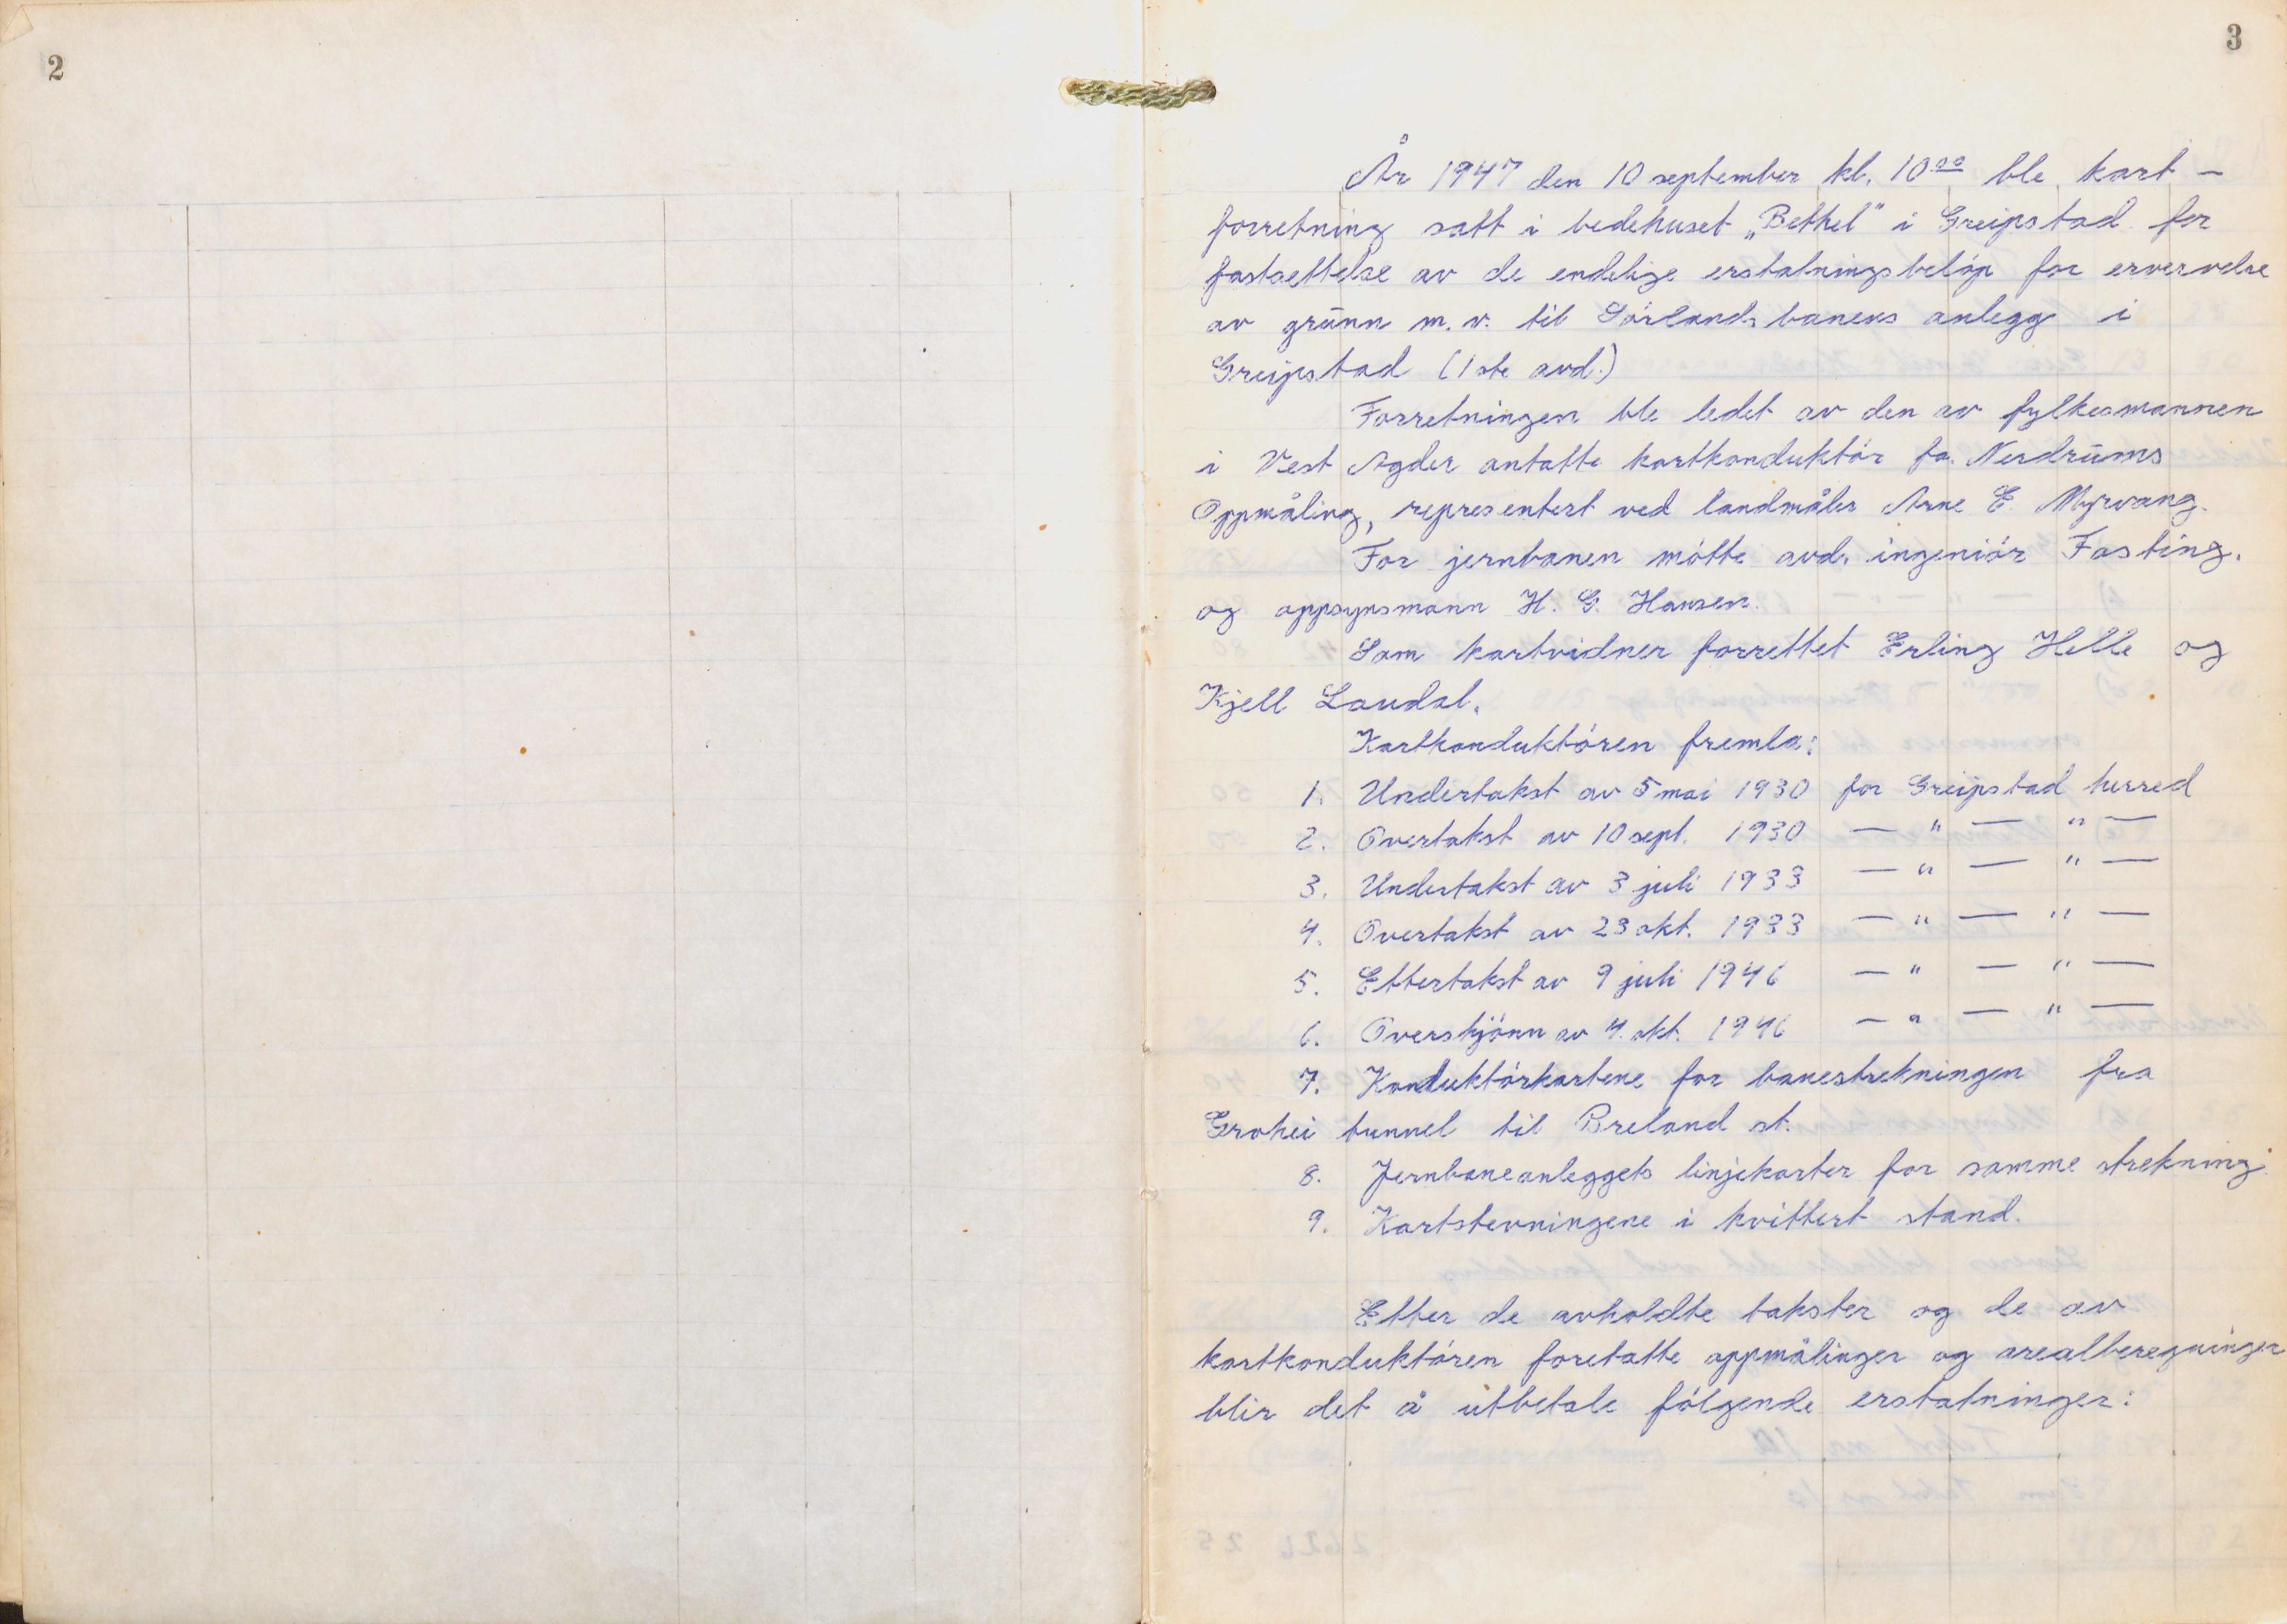 2
3
År 1947 den 10 september kl. 10⁰⁰ ble kart-
forretning satt i bedehuset „Bethel" i Greipstad for
fastsettelse av de endelige erstatningsbeløp for ervervelse
av grunn m.v. til Sørlandsbanens anlegg i
Greipstad (1ste avd.)
Forretningen ble ledet av den av fylkesmannen
i Vest Agder antatte kartkonduktør fa. Nerdrums
Oppmåling, representert ved landmåler Arne E. Myrvang.
For jernbanen møtte avd. ingeniør Fasting.
og oppsynsmann H. G. Hansen.
Som kartvidner forrettet Erling Helle og
Kjell Laudal.
Kartkonduktøren fremla:
1. Undertakst av 5 mai 1930 for Greipstad herred
2. Overtakst av 10 sept. 1930 — " — " —
3. Undertakst av 3 juli 1933 — " — " —
4. Overtakst av 23 okt. 1933 — " — " —
5. Ettertakst av 9 juli 1946 — " — " —
6. Overskjønn av 4. okt. 1946 — " — " —
7. Konduktørkartene for banestrekningen fra
Grohei tunnel til Breland st.
8. Jernbaneanleggets linjekarter for samme strekning.
9. Kartstevningene i kvittert stand.
Etter de avholdte takster og de av
kartkonduktøren foretatte oppmålinger og arealberegninger
blir det å utbetale følgende erstatninger: